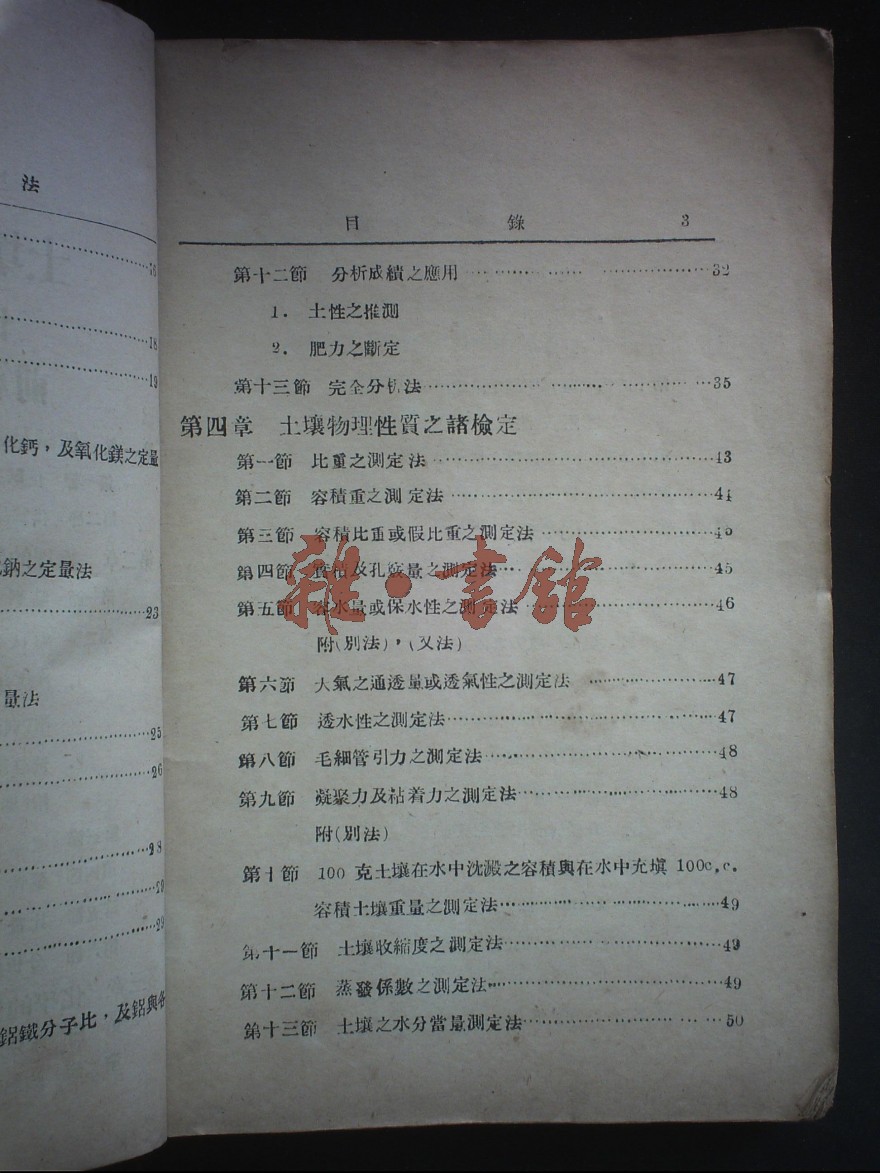 法
76
18
19
化鈣，及氧化鎂之定量
鈉之定量法
23
量法
25
26
28
29
鋁鐵分子比，及鋁與
目 錄 3
第十二節 分析成績之應用 32
1. 土性之推測
2. 肥力之斷定
第十三節 完全分析法 35
第四章 土壤物理性質之諸檢定
第一節 比重之測定法 43
第二節 容積重之測定法 44
第三節 容積比重或假比重之測定法 45
第四節 實積及孔隙量之測定法 45
第五節 容水量或保水性之測定法 46
附(別法)，(又法)
第六節 大氣之通透量或透氣性之測定法 47
第七節 透水性之測定法 47
第八節 毛細管引力之測定法 48
第九節 凝聚力及粘着力之測定法 48
附(別法)
第十節 100 克土壤在水中沈澱之容積與在水中充塡 100c.c.
容積土壤重量之測定法 49
第十一節 土壤收縮度之測定法 49
第十二節 蒸發係數之測定法 49
第十三節 土壤之水分當量測定法 50
雜·書館